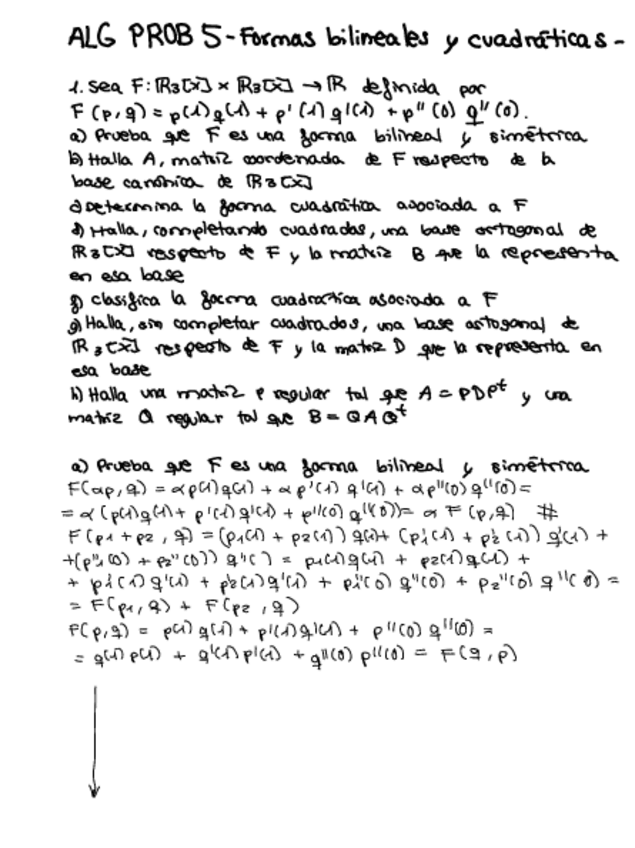 ALG PROB 5 - Formas bilineales y cuadráticas -
1. Sea F: ℝ3[x] × ℝ3[x] → ℝ definida por
F(p,q) = p(1)q(1) + p'(1) q'(1) + p''(0) q''(0).
a) Prueba que F es una forma bilineal y simétrica
b) Halla A, matriz coordenada de F respecto de la
base canónica de ℝ3[x]
c) Determina la forma cuadrática asociada a F
d) Halla, completando cuadrados, una base ortogonal de
ℝ3[x] respecto de F y la matriz B que la representa
en esa base
f) clasifica la forma cuadrática asociada a F
g) Halla, sin completar cuadrados, una base ortogonal de
ℝ3[x] respecto de F y la matriz D que la representa en
esa base
h) Halla una matriz P regular tal que A = PDP^t y una
matriz Q regular tal que B = QAQ^t
a) Prueba que F es una forma bilineal y simétrica
F(αp,q) = αp(1)q(1) + αp'(1) q'(1) + αp''(0)q''(0) =
= α(p(1)q(1) + p'(1)q'(1) + p''(0)q''(0)) = αF(p,q) #
F(p1 + p2, q) = (p1(1) + p2(1)) q(1) + (p1'(1) + p2'(1)) q'(1) +
+(p1''(0) + p2''(0)) q''( ) = p1(1)q(1) + p2(1)q(1) +
+ p1'(1)q'(1) + p2'(1)q'(1) + p1''(0) q''(0) + p2''(0) q''(0) =
= F(p1,q) + F(p2,q)
F(p,q) = p(1)q(1) + p'(1)q'(1) + p''(0) q''(0) =
= q(1)p(1) + q'(1)p'(1) + q''(0) p''(0) = F(q,p)